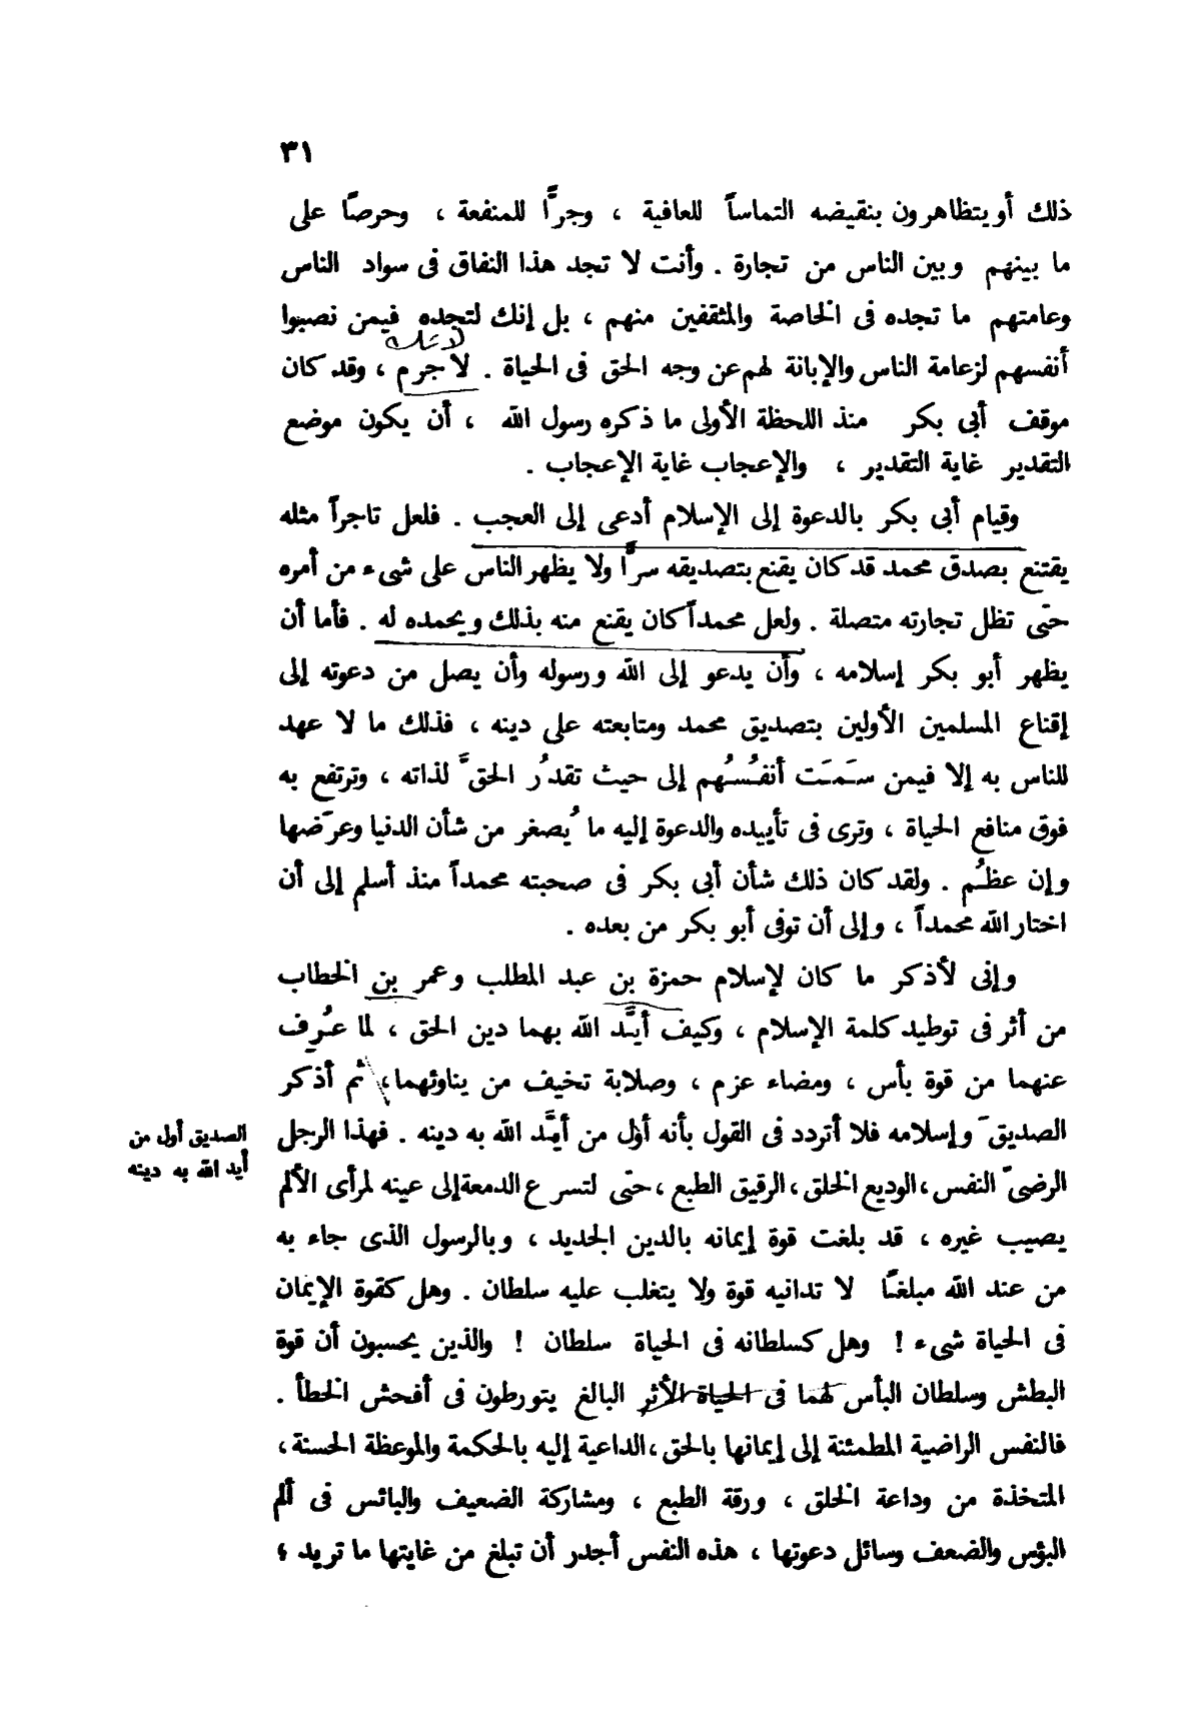 ٣١
ذلك أو يتظاهرون بنقيضه التماساً للعافية ، وجرًّا للمنفعة ، وحرصًا على
ما بينهم وبين الناس من تجارة . وأنت لا تجد هذا النفاق فى سواد الناس
وعامتهم ما تجده فى الخاصة والمثقفين منهم ، بل إنك لتجده فيمن نصبوا
لا شك
أنفسهم لزعامة الناس والإبانة لهم عن وجه الحق فى الحياة . لا جرم ، وقد كان
موقف أبى بكر منذ اللحظة الأولى ما ذكره رسول الله ، أن يكون موضع
التقدير غاية التقدير ، والإعجاب غاية الإعجاب .
وقيام أبى بكر بالدعوة إلى الإسلام أدعى إلى العجب . فلعل تاجراً مثله
يقتنع بصدق محمد قد كان يقنع بتصديقه سرًّا ولا يظهر الناس على شىء من أمره
حتى تظل تجارته متصلة . ولعل محمداً كان يقنع منه بذلك ويحمده له . فأما أن
يظهر أبو بكر إسلامه ، وأن يدعو إلى الله ورسوله وأن يصل من دعوته إلى
إقناع المسلمين الأولين بتصديق محمد ومتابعته على دينه ، فذلك ما لا عهد
للناس به إلا فيمن سَمَت أنفُسُهم إلى حيث تقدُر الحقَّ لذاته ، وترتفع به
فوق منافع الحياة ، وترى فى تأييده والدعوة إليه ما يُصغر من شأن الدنيا وعرَضها
وإن عظُم . ولقد كان ذلك شأن أبى بكر فى صحبته محمداً منذ أسلم إلى أن
اختار الله محمداً ، وإلى أن توفى أبو بكر من بعده .
وإنى لأذكر ما كان لإسلام حمزة بن عبد المطلب وعمر بن الخطاب
من أثر فى توطيد كلمة الإسلام ، وكيف أيَّد الله بهما دين الحق ، لما عُرِف
عنهما من قوة بأس ، ومضاء عزم ، وصلابة تخيف من يناوئهما ، ثم أذكر
الصديقَ وإسلامه فلا أتردد فى القول بأنه أول من أيَّد الله به دينه . فهذا الرجل
الصديق أول من
أيد الله به دينه
الرضىّ النفس ، الوديع الخلق ، الرقيق الطبع ، حتى لتسرع الدمعة إلى عينه لمرأى الألم
يصيب غيره ، قد بلغت قوة إيمانه بالدين الجديد ، وبالرسول الذى جاء به
من عند الله مبلغًا لا تدانيه قوة ولا يتغلب عليه سلطان . وهل كقوة الإيمان
فى الحياة شىء ! وهل كسلطانه فى الحياة سلطان ! والذين يحسبون أن قوة
البطش وسلطان البأس لهما فى الحياة الأثر البالغ يتورطون فى أفحش الخطأ .
فالنفس الراضية المطمئنة إلى إيمانها بالحق ، الداعية إليه بالحكمة والموعظة الحسنة ،
المتخذة من وداعة الخلق ، ورقة الطبع ، ومشاركة الضعيف والبائس فى ألم
البؤس والضعف وسائل دعوتها ، هذه النفس أجدر أن تبلغ من غايتها ما تريد ؛